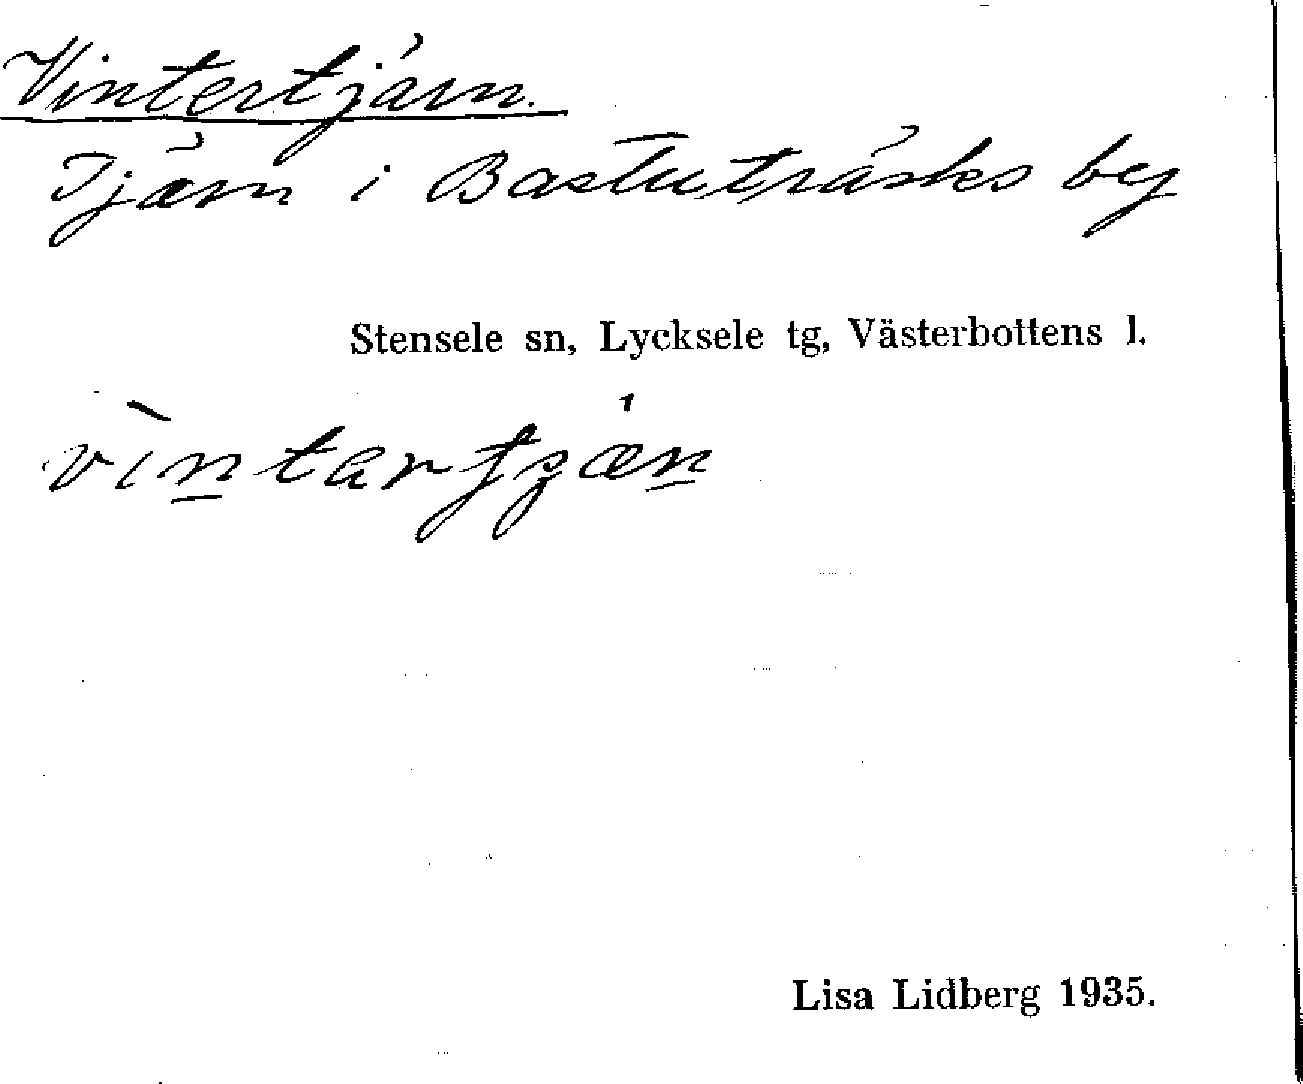 Vintertjärn.
Tjärn i Bastuträsks by
Stensele sn, Lycksele tg, Västerbottens l.
Lisa Lidberg 1935.